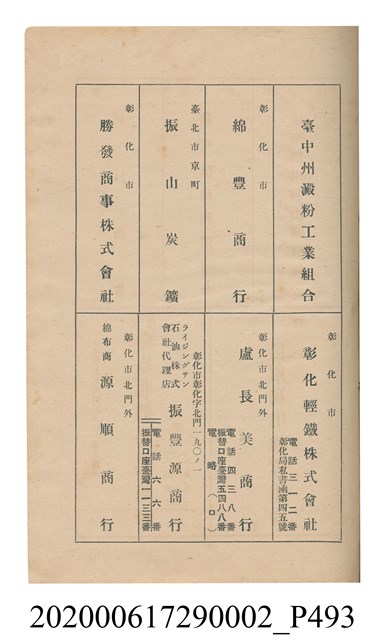 臺中州澱粉工業組合
彰化市
綿豐商行
臺北市京町
振山炭鑛
彰化市
勝發商事株式會社
彰化市
彰化輕鐵株式會社
電話三一二番
彰化局私書函第四五號
彰化市北門外
盧長美商行
電話四三八番
振替口座臺灣五四八八番
電略(ロ)
彰化市彰化字北門一九〇ノ一
ライジングサン
石油株式
會社代理店
振豐源商行
電話六六番
振替口座臺灣一一三三番
彰化市北門外
綿布商
源順商行
202000617290002_P493